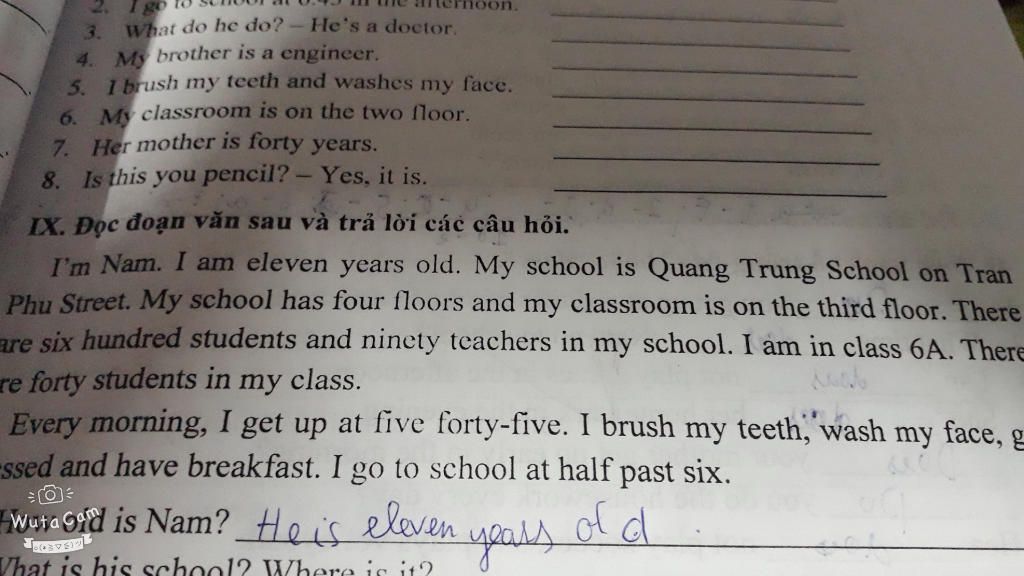 2. I go to school at 6:45 in the afternoon.
3. What do he do? – He's a doctor.
4. My brother is a engineer.
5. I brush my teeth and washes my face.
6. My classroom is on the two floor.
7. Her mother is forty years.
8. Is this you pencil? – Yes, it is.
IX. Đọc đoạn văn sau và trả lời các câu hỏi.
I'm Nam. I am eleven years old. My school is Quang Trung School on Tran
Phu Street. My school has four floors and my classroom is on the third floor. There
are six hundred students and ninety teachers in my school. I am in class 6A. There
re forty students in my class.
Every morning, I get up at five forty-five. I brush my teeth, wash my face, g
ssed and have breakfast. I go to school at half past six.
How old is Nam? He is eleven years old
What is his school? Where is it?
WutaCam